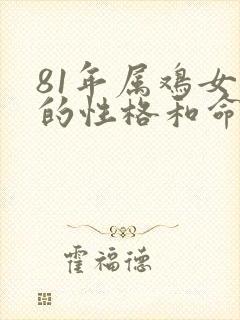 81年属鸡女
的性格和命
霍福德